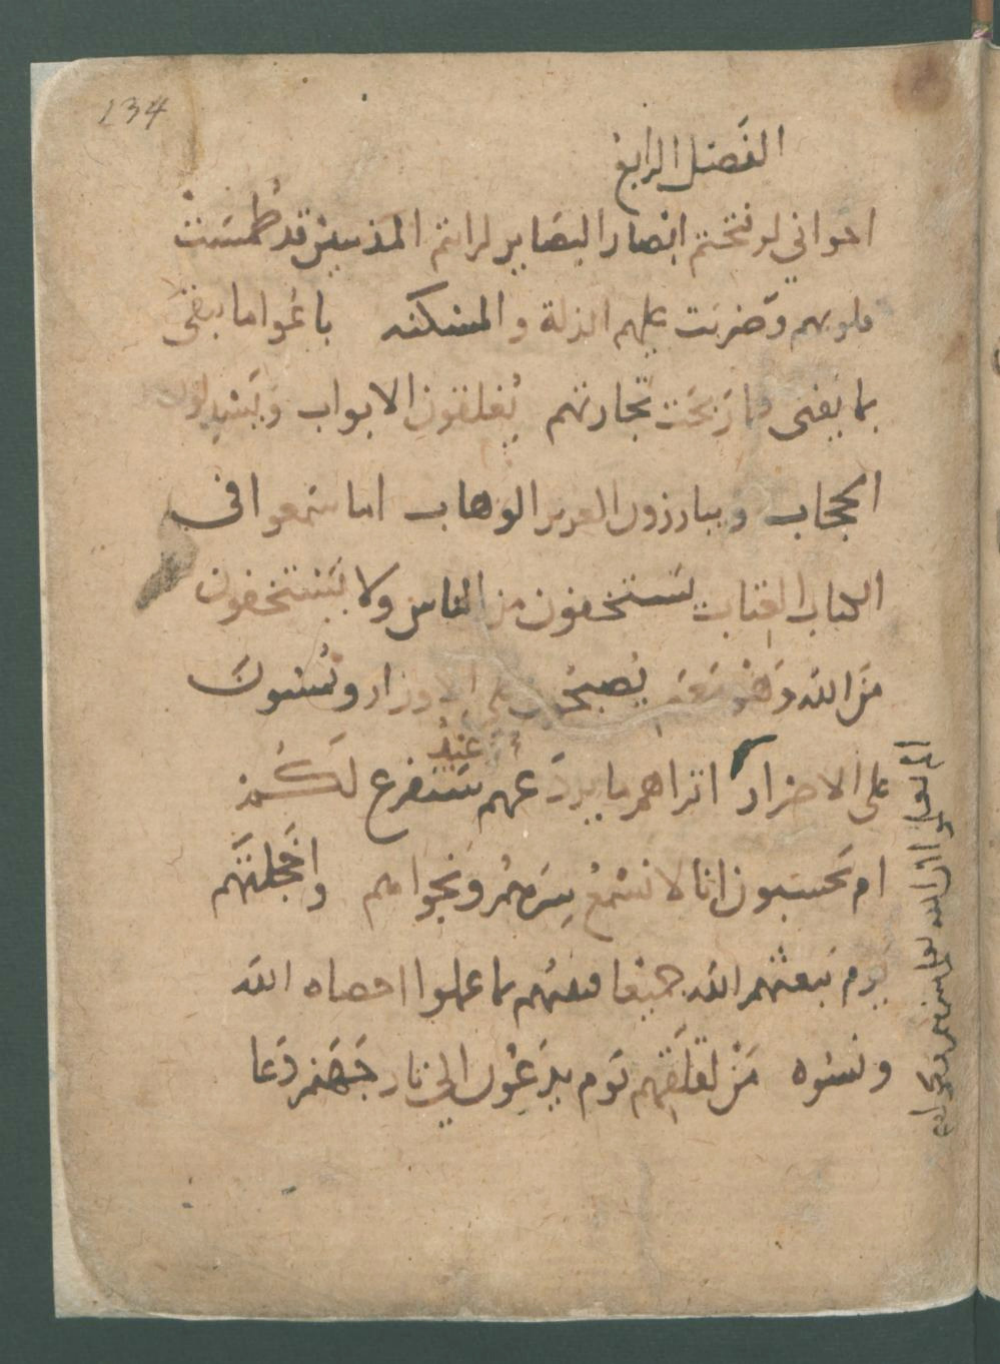 134
الفصل الرابع
اخواني لو فتحتم ابصار البصاير لرايتم المذنبين قد طمست
قلوبهم وضربت عليهم الذلة والمسكنه باعوا ما يبقى
بما يفنى فما ربحت تجارتهم يغلقون الابواب ويسدلون
الحجاب ويبارزون العزيز الوهاب اما سمعوا في
الكتاب العتاب يستخفون من الناس ولا يستخفون
من الله وهو معهم يصبحون على الاوزار ويمسون
على الاضرار اتراهم ما يردعهم سنفرغ لكم
ام يحسبون انا لا نسمع سرهم ونجواهم واخجلتهم
يوم يبعثهم الله جميعا فينبئهم بما عملوا احصاه الله
ونسوه من لقلقهم يوم يدعون الى نار جهنم دعا
الم يعلموا ان الله يعلم سرهم ونجواهم